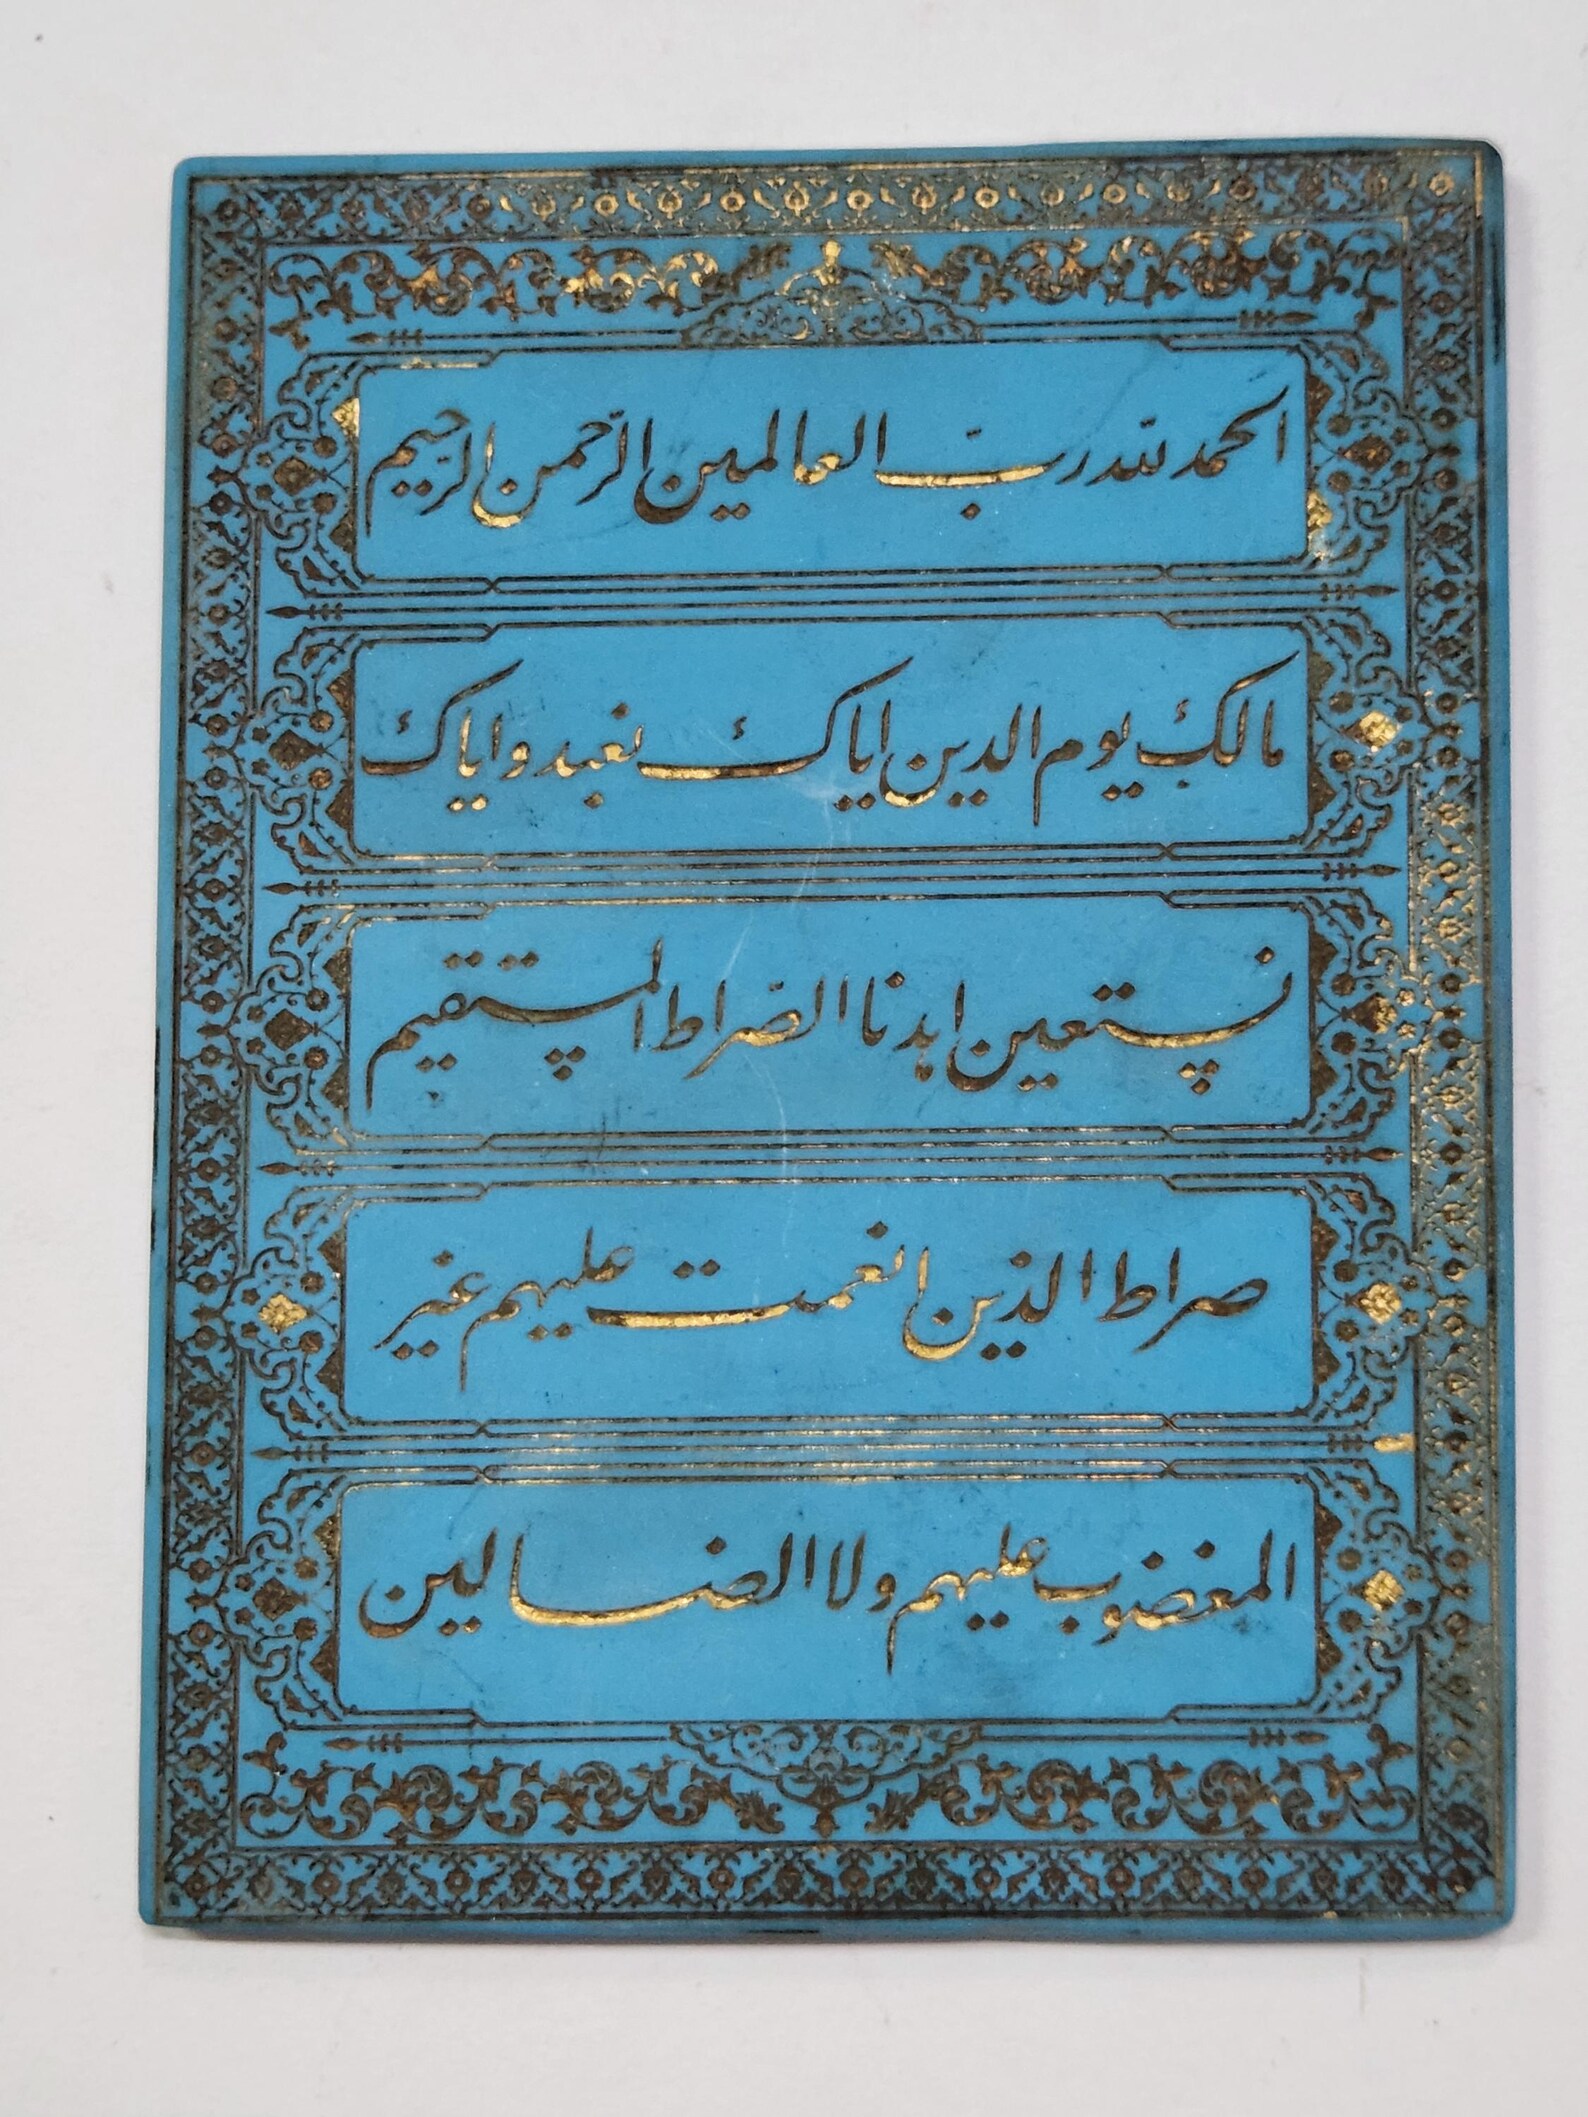 الحمد لله ربّ العالمين الرّحمن الرّحيم
مالک يوم الدين اياک نعبد و اياک
نستعين اهدنا الصّراط المستقيم
صراط الذين انعمت عليهم غير
المغضوب عليهم ولا الضالين